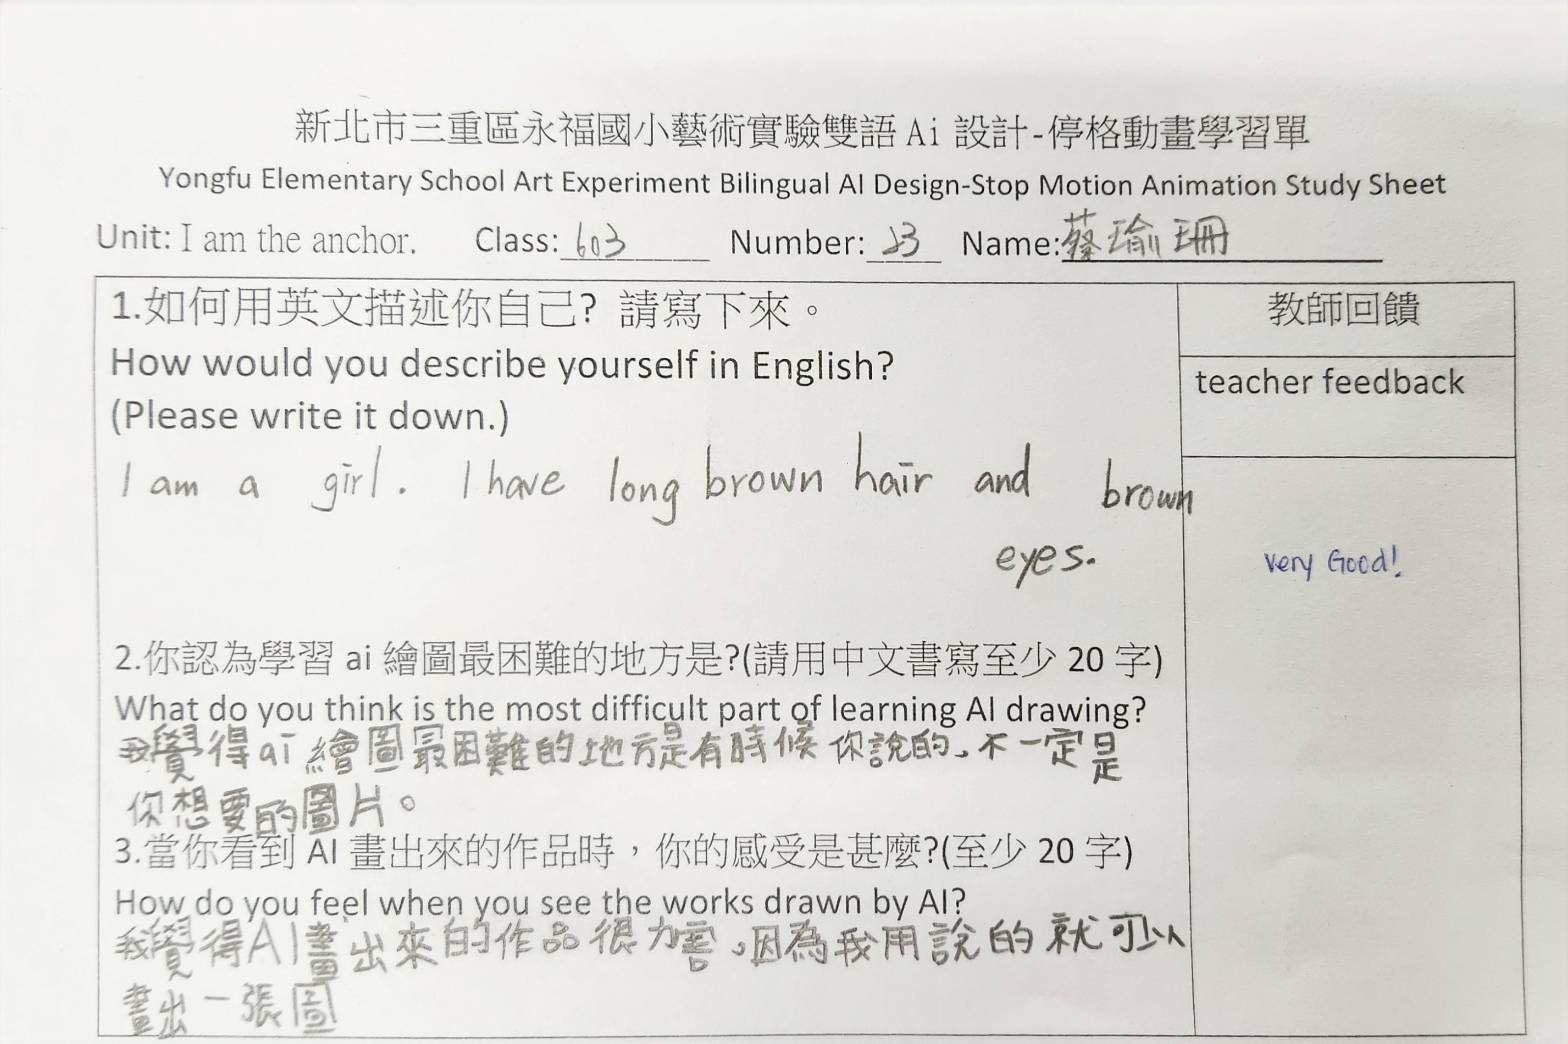 新北市三重區永福國小藝術實驗雙語 Ai 設計-停格動畫學習單
Yongfu Elementary School Art Experiment Bilingual AI Design-Stop Motion Animation Study Sheet
Unit: I am the anchor. Class: 603 Number: 23 Name: 蔡瑜珊
1.如何用英文描述你自己? 請寫下來。
教師回饋
How would you describe yourself in English?
teacher feedback
(Please write it down.)
I am a girl. I have long brown hair and brown
eyes.
very Good!
2.你認為學習 ai 繪圖最困難的地方是?(請用中文書寫至少 20 字)
What do you think is the most difficult part of learning AI drawing?
我覺得ai繪圖最困難的地方是有時候你說的,不一定是
你想要的圖片。
3.當你看到 AI 畫出來的作品時，你的感受是甚麼?(至少 20 字)
How do you feel when you see the works drawn by AI?
我覺得AI畫出來的作品很力害,因為我用說的就可以
畫出一張圖